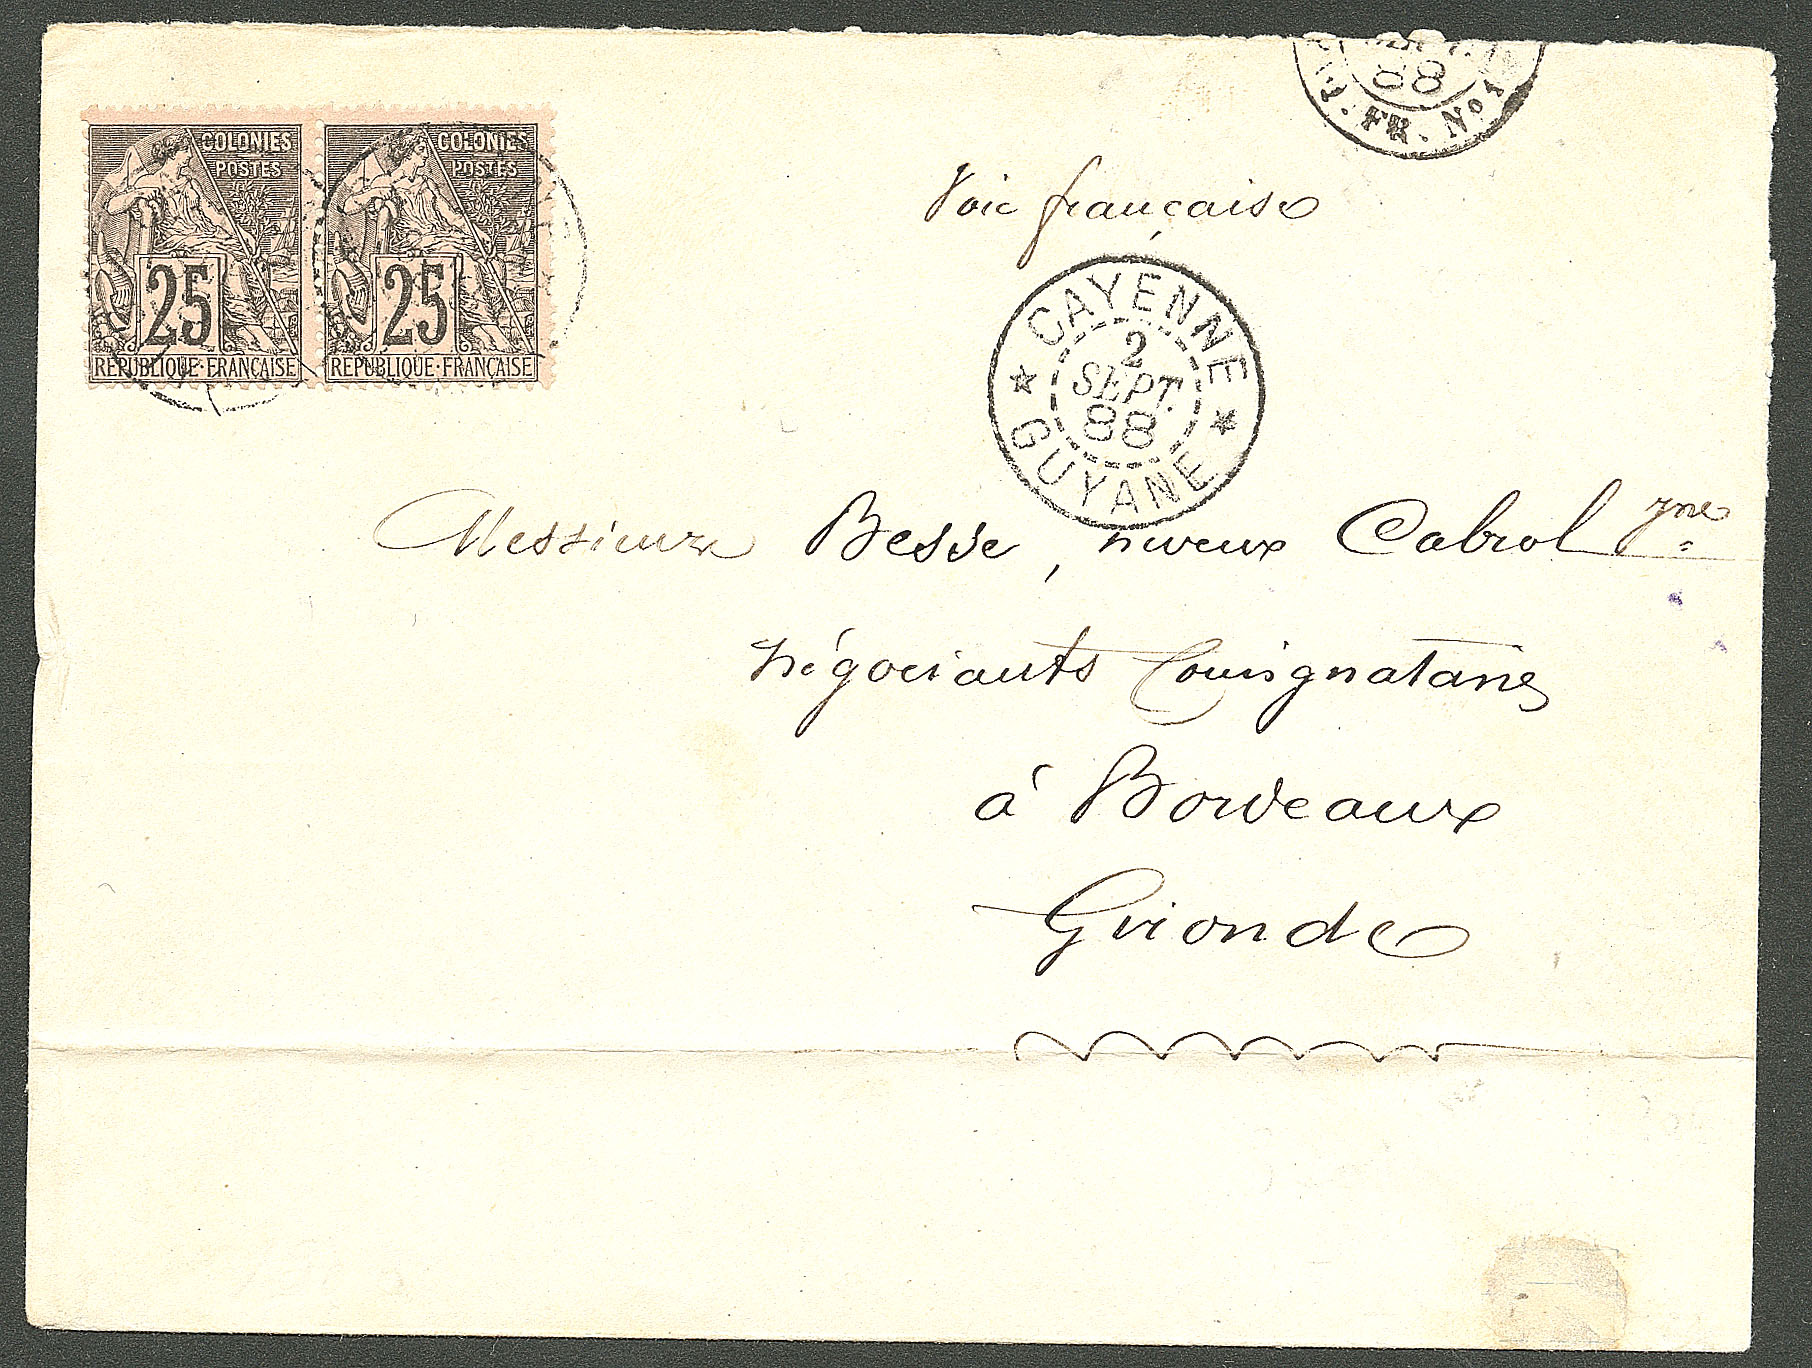 COLONIES
POSTES
25
RÉPUBLIQUE·FRANÇAISE
COLONIES
POSTES
25
RÉPUBLIQUE·FRANÇAISE
88
FR. No 1
Voie française
CAYENNE
2
SEPT.
88
GUYANE
Messieurs Besse, neveux Cabrol jne
négociants Consignataires
à Bordeaux
Gironde